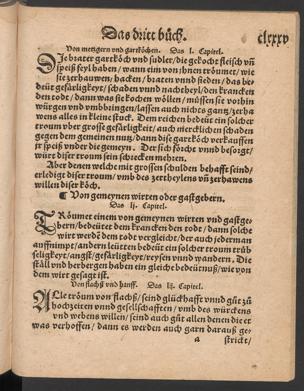 Das dritt bůch. clxxxv
Von metzgern vnd gartköchen. Das l. Capitel.
Die brater gartköch vnd sudler/ die gekocht fleisch vñ
speiß feyl haben/ wann ein von jhnen tröumet/ wie
sie zerhauwen/ hacken/ braten vnnd sieden/ das be-
deüt geserligkeyt/ schaden vnnd nachtheyl/ den krancken
den todt/ dann was sie kochen wöllen/ müssen sie vorhin
würgen vnd vmbbringen/ lassen auch nichts gantz/ zerha
wens alles in kleine stuck. Dem reichen bedeüt ein solcher
troum vber grosse geferligkeit/ auch mercklichen schaden
gegen den gemeinen nutz/ dann dise gartköch verkauffen
jr speiß vnder die gemeyn. Der sich förcht vnnd besorgt/
würt diser troum sein schrecken mehren.
Aber denen welche mit grossen schulden behafft seind/
erlediget diser troum/ vmb des zertheylens vñ zerhawens
willen diser köch.
¶ Von gemeynen wirten oder gastgebern.
Das lj. Capitel.
TRöumet einem von gemeynen wirten vnd gastge-
bern/ bedeütet dem krancken den todt/ dann solche
wirt werdẽ dem todt vergleicht/ der auch jederman
auffnimpt/ andern leüten bedeüt ein solcher troum trüb
seligkeyt/ angst/ geferligkeyt/ reysen vnnd wandern. Die
ställ vnd herbergen haben ein gleiche bedeütnuß/ wie von
dem wirt gesagt ist.
Von flachß vnd hanff. Das lij. Capitel.
ALle tröum von flachß/ seind glückhafft vnnd gůt zů
hochzeiten vnnd gesellschafften/ vmb des würckens
vnd webens willen/ seind auch gůt allen denen die et
was verhoffen/ dann es werden auch garn darauß ge-
a strickt/